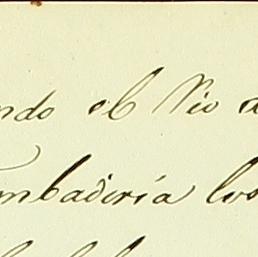 ndo el Rio a
mbadiria los